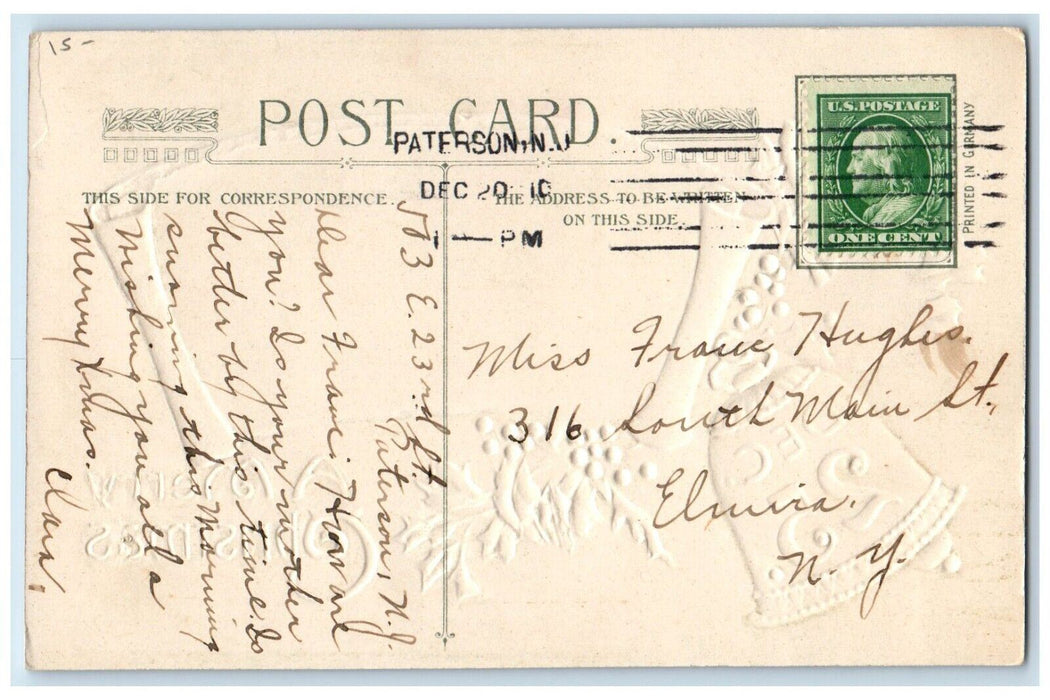 15-
POST CARD.
THIS SIDE FOR CORRESPONDENCE.
THE ADDRESS TO BE WRITTEN
ON THIS SIDE.
PATERSON, N.J
DEC 20 10
1 - PM
U.S. POSTAGE
ONE CENT
PRINTED IN GERMANY
E. 23rd St.
Paterson, N.J.
Dear Franc: How are
you? Is your mother
better by this time. Is
this Morning
Wishing you all a
Merry Xmas.
Clara,
Miss Franc Hughes.
316 South Main St.,
Elmira.
N.Y.
A Merry
Christmas
DEC
25